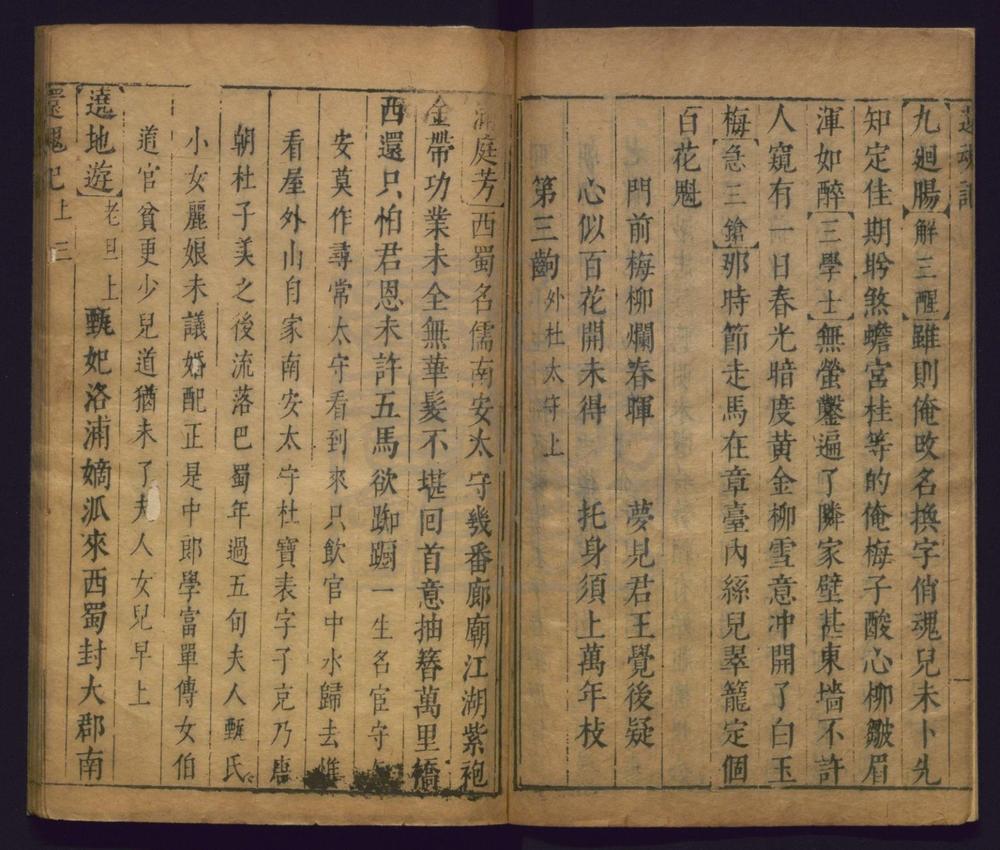 還魂記
九廻腸【解三酲】雖則俺改名換字俏魂兒未卜先
知定佳期盻煞蟾宮桂等的俺梅子酸心柳皺眉
渾如醉【三學士】無螢鑿遍了隣家壁甚東墻不許
人窺有一日春光暗度黃金柳雪意冲開了白玉
梅【急三鎗】那時節走馬在章臺內絲兒翠籠定個
百花魁
門前梅柳爛春暉 夢見君王覺後疑
心似百花開未得 托身須上萬年枝
第三齣 外杜太守上
滿庭芳】西蜀名儒南安太守幾番廊廟江湖紫袍
金帶功業未全無華髮不堪囘首意抽簪萬里橋
西還只怕君恩未許五馬欲踟躕一生名宦守
安莫作尋常太守看到來只飲官中水歸去惟
看屋外山自家南安太守杜寶表字子充乃唐
朝杜子美之後流落巴蜀年過五旬夫人甄氏
小女麗娘未議婚配正是中郎學富單傳女伯
道官貧更少兒道猶未了夫人女兒早上
【遶地遊】老旦上 甄妃洛浦嫡派來西蜀封大郡南
還魂記 上 三